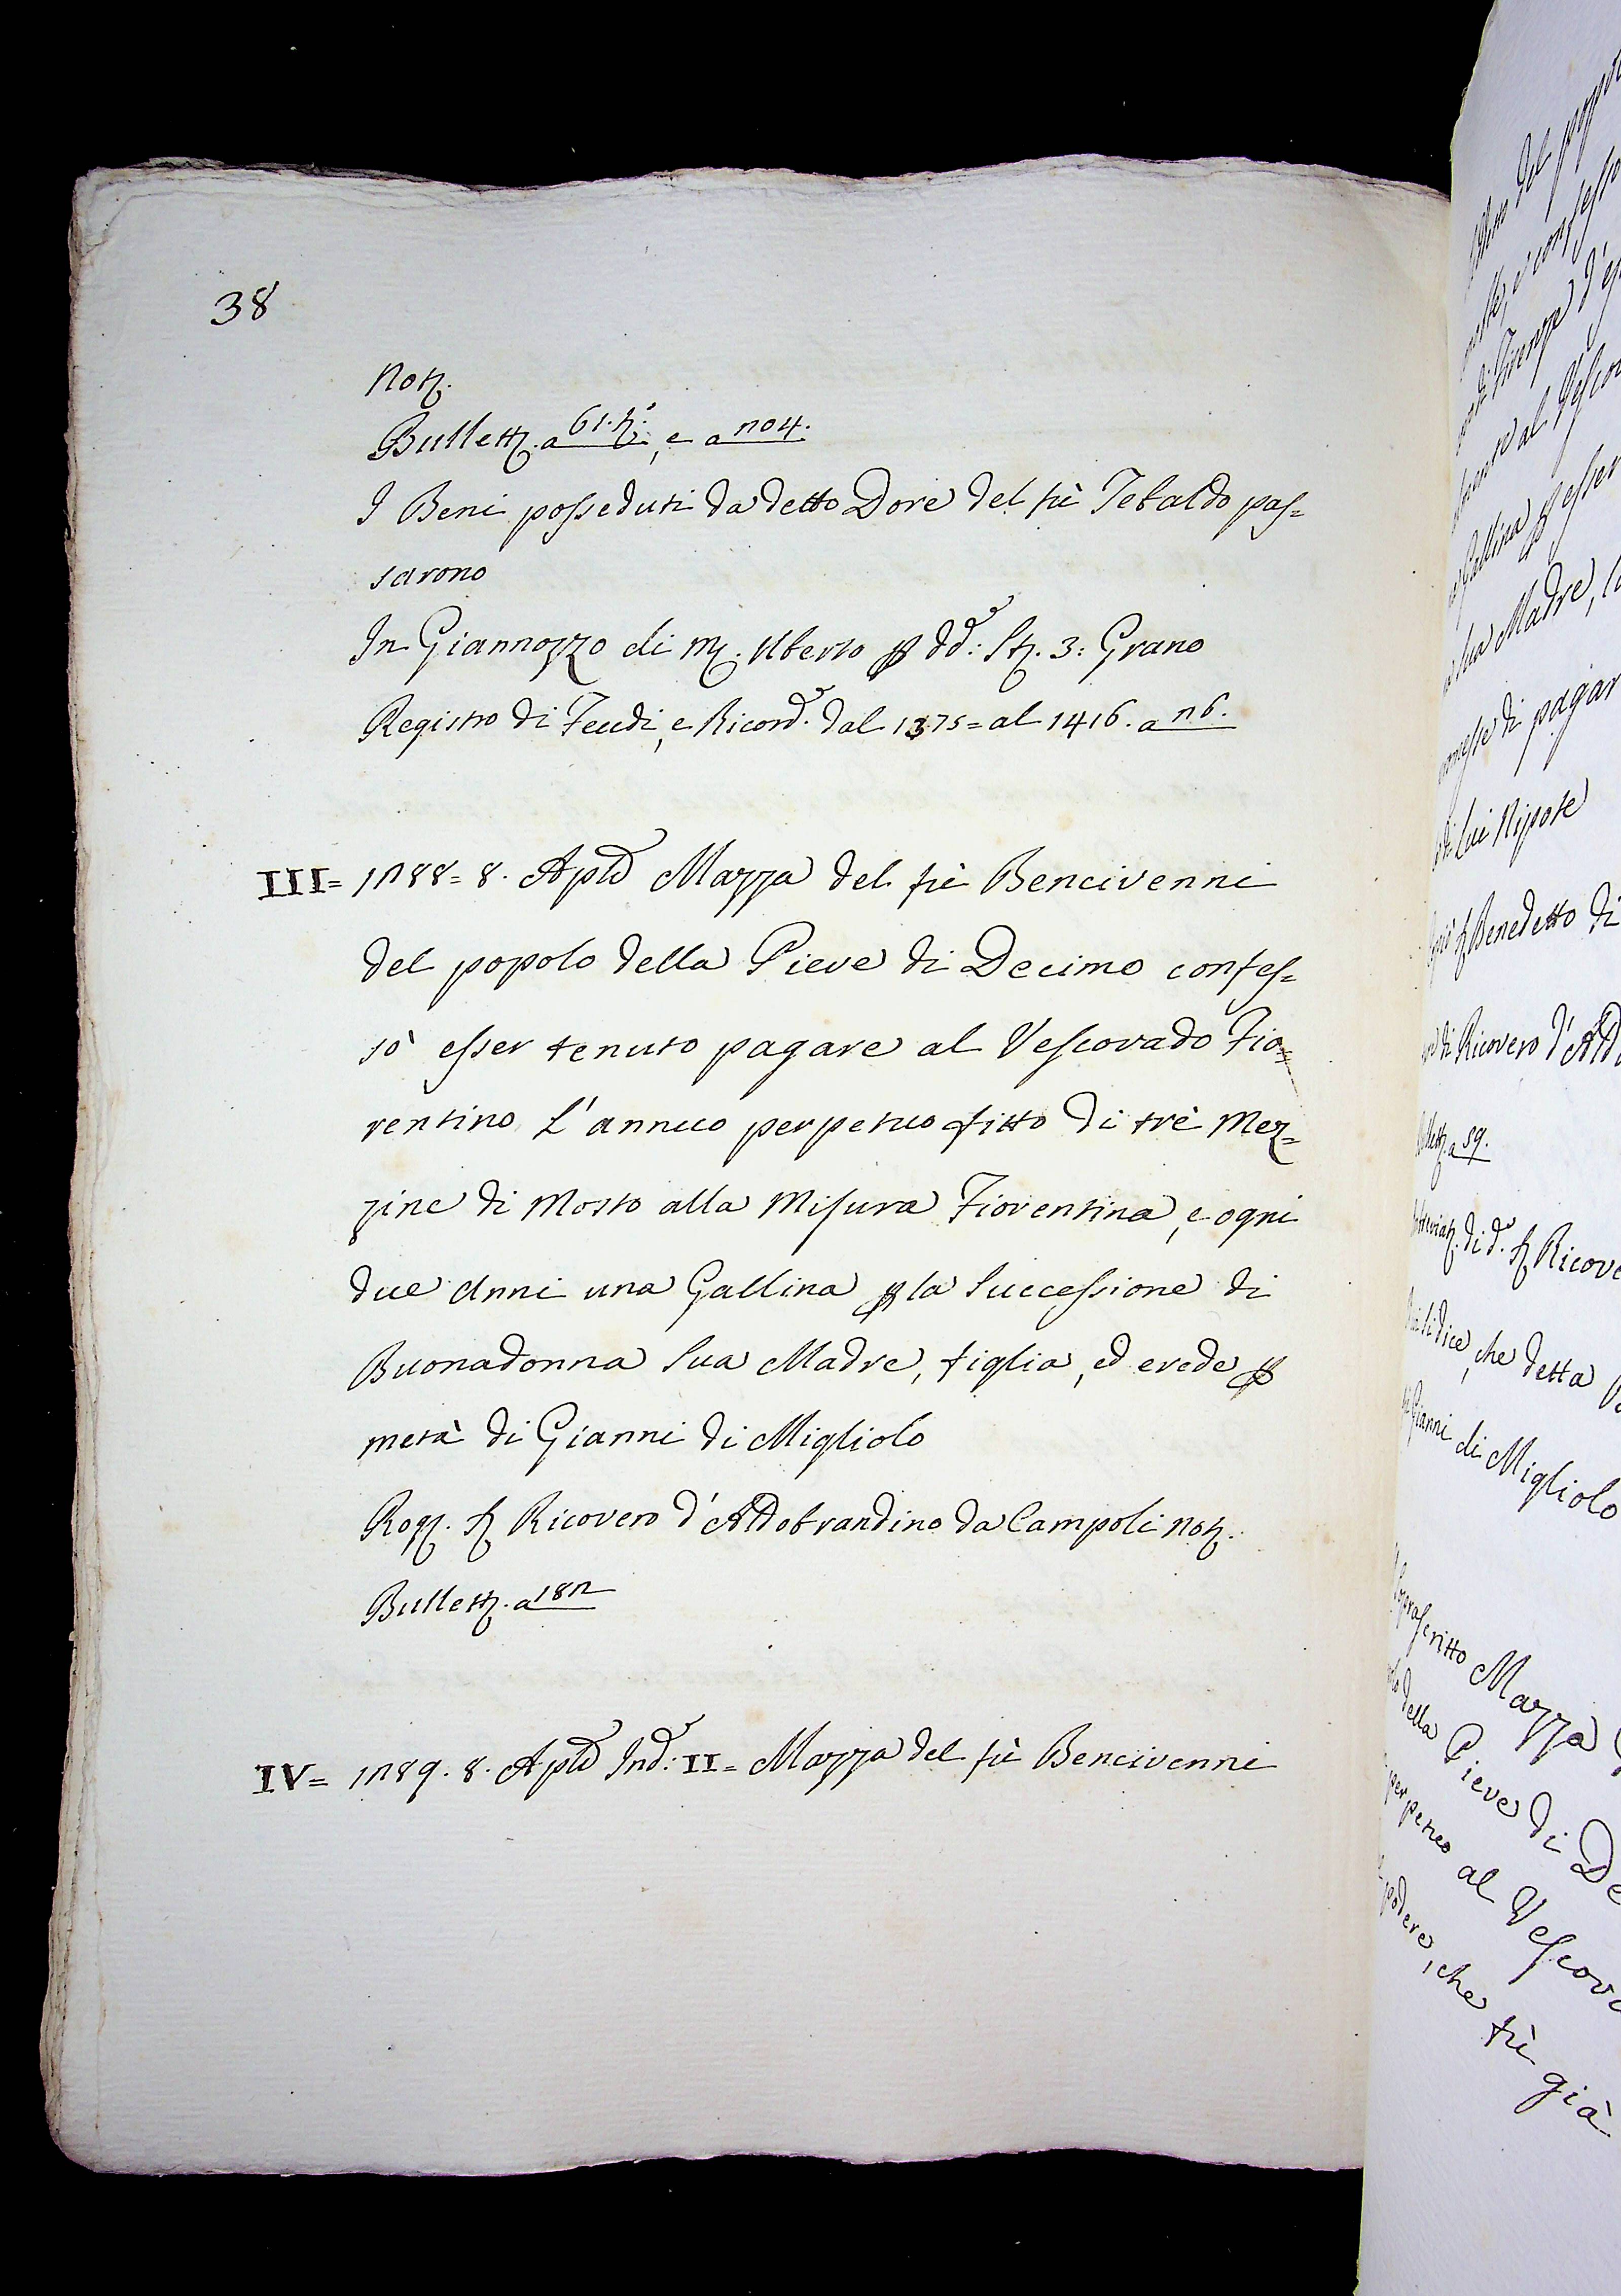 38
Notž.
Bullettž. a 61. tž:, e a 204.
I Beni posseduti da detto Dore del fù Tebaldo pas=
sarono
In Giannozzo di Mž. Uberto p dd.º: Stž. 3: Grano
Registro di Feudi, e Ricord.º dal 1375= al 1416. a 26.
III= 1288= 8. Aple Mazza del fù Bencivenni
del popolo della Pieve di Decimo confes=
sò esser tenuto pagare al Vescovado Fio=
rentino l'annuo perpetuo fitto di trè Mez=
zine di Mosto alla Misura Fiorentina, e ogni
due Anni una Gallina p la Successione di
Buonadonna Sua Madre, figlia, ed erede p
metà di Gianni di Migliolo
Rogž. Sž Ricovero d'Aldobrandino da Campoli Notž.
Bullettž. a 182
IV= 1289. 8. Aple Ind.e: II= Mazza del fù Bencivenni
del popolo
e confesso
di Firenze d'
al Vescov
Gallina p esser
sua Madre,
di pagar
di lui Nipote
Benedetto di
di Ricovero d'Ald
a 59.
di d.º Sž Ricove
si dice, che detta
Gianni di Migliolo
Soprascritto Mazza
della Pieve di De
perpetuo al Vescov
podere, che fù già